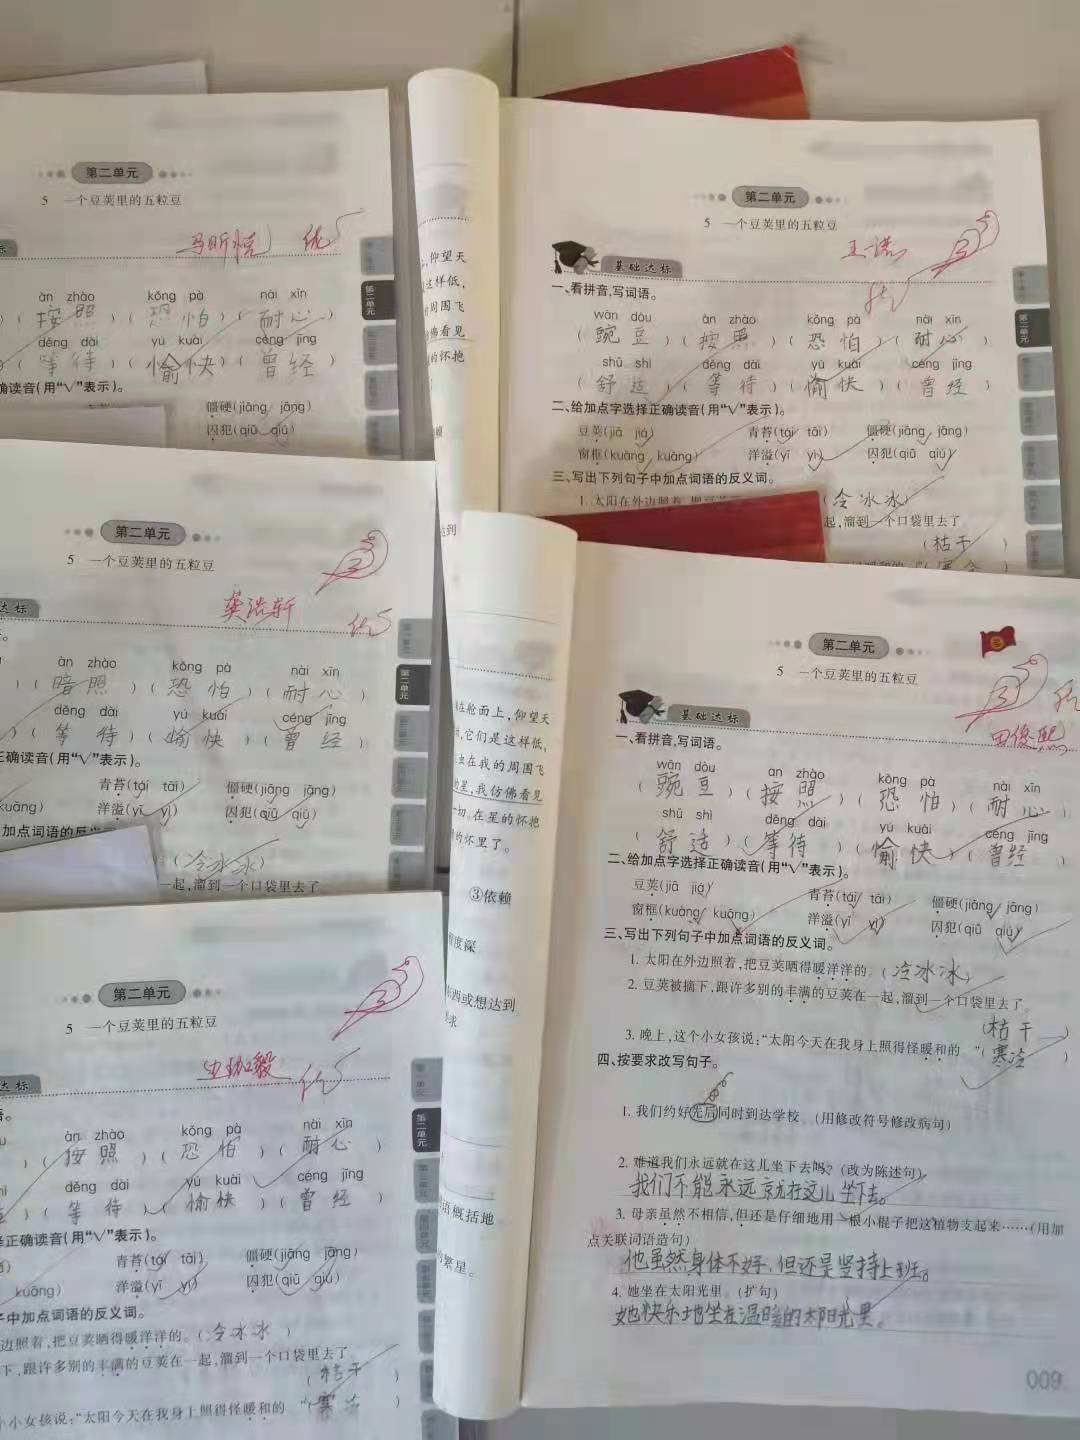 第二单元
5 一个豆荚里的五粒豆
马昕悦 优
标
àn zhào kǒng pà nài xīn
)(按照)(恐怕)(耐心)
děng dài yú kuài céng jīng
)(等待)(愉快)(曾经)
确读音(用“√”表示)。
僵硬(jiāng jāng)
囚犯(qiū qiú)
第二单元
第二单元
5 一个豆荚里的五粒豆
王一诺
优
基础达标
一、看拼音,写词语。
wān dòu àn zhào kǒng pà nài xīn
(豌豆)(按照)(恐怕)(耐心)
shū shì děng dài yú kuài céng jīng
(舒适)(等待)(愉快)(曾经)
二、给加点字选择正确读音(用“√”表示)。
豆荚(jiā jiá) 青苔(tái tāi) 僵硬(jiāng jāng)
窗框(kuàng kuāng) 洋溢(yī yì) 囚犯(qiū qiú)
三、写出下列句子中加点词语的反义词。
1. 太阳在外边照着,把豆 (冷冰冰)
起,溜到一个口袋里去了
(枯干)
第二单元
,仰望天
这样低,
的周围飞
仿佛看见
的怀抱
达到
第二单元
5 一个豆荚里的五粒豆
龚浩轩 优
达标
àn zhào kǒng pà nài xīn
)(暗照)(恐怕)(耐心)
děng dài yú kuài céng jīng
)(等待)(愉快)(曾经)
正确读音(用“√”表示)。
青苔(tái tāi) 僵硬(jiāng jāng)
kuāng) 洋溢(yī yì) 囚犯(qiū qiú)
加点词语的反义词
(冷冰冰)
一起,溜到一个口袋里去了
第二单元
第二单元
5 一个豆荚里的五粒豆
优
达标
àn zhào kǒng pà nài xīn
)(按照)(恐怕)(耐心)
děng dài yú kuài céng jīng
)(等待)(愉快)(曾经)
择正确读音(用“√”表示)。
青苔(tái tāi) 僵硬(jiāng jāng)
kuāng) 洋溢(yī yì) 囚犯(qiū qiú)
子中加点词语的反义词。
边照着,把豆荚晒得暖洋洋的。(冷冰冰)
下,跟许多别的丰满的豆荚在一起,溜到一个口袋里去了
(枯干)
小女孩说:“太阳今天在我身上照得怪暖和的
第二单元
在舱面上,仰望天
,它们是这样低,
虫在我的周围飞
,我仿佛看见
一切。在星的怀抱
的怀里了。
③依赖
程度深
东西或想达到
要求
语概括地
繁星。
第二单元
5 一个豆荚里的五粒豆
优
田俊熙
基础达标
一、看拼音,写词语。
wān dòu àn zhào kǒng pà nài xīn
(豌豆)(按照)(恐怕)(耐心)
shū shì děng dài yú kuài céng jīng
(舒适)(等待)(愉快)(曾经)
二、给加点字选择正确读音(用“√”表示)。
豆荚(jiā jiá) 青苔(tái tāi) 僵硬(jiāng jāng)
窗框(kuàng kuāng) 洋溢(yī yì) 囚犯(qiū qiú)
三、写出下列句子中加点词语的反义词。
1. 太阳在外边照着,把豆荚晒得暖洋洋的。(冷冰冰)
2. 豆荚被摘下,跟许多别的丰满的豆荚在一起,溜到一个口袋里去了。
(枯干)
3. 晚上,这个小女孩说:“太阳今天在我身上照得怪暖和的。”(寒冷)
四、按要求改写句子。
1. 我们约好先后同时到达学校。(用修改符号修改病句)
2. 难道我们永远就在这儿坐下去吗?(改为陈述句)
我们不能永远就在这儿坐下去。
3. 母亲虽然不相信,但还是仔细地用一根小棍子把这植物支起来……(用加
点关联词语造句)
他虽然身体不好,但还是坚持上班。
4. 她坐在太阳光里。(扩句)
她快乐地坐在温暖的太阳光里。
009